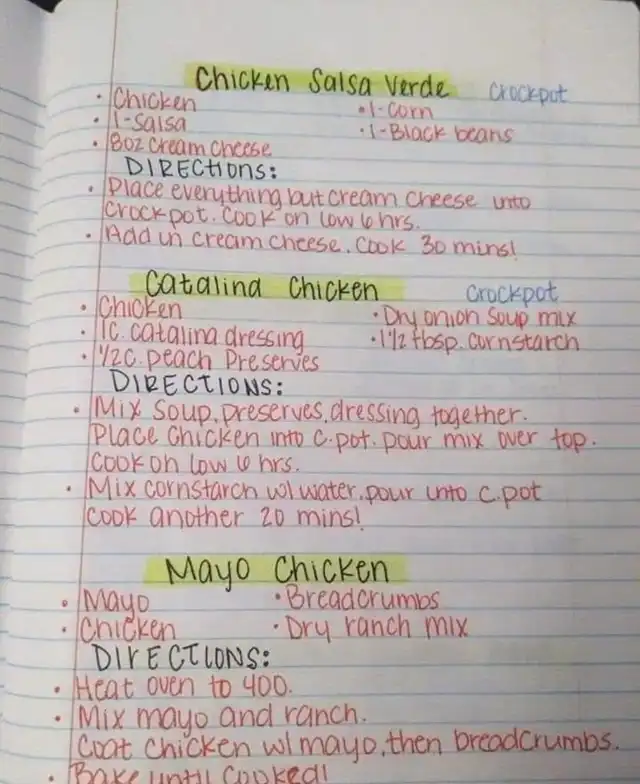 Chicken Salsa Verde Crockpot
• Chicken • 1-Corn
• 1-Salsa • 1-Black beans
• 8oz cream cheese
DIRECTIONS:
• Place everything but cream cheese into
crockpot. Cook on low 6 hrs.
• Add in cream cheese. Cook 30 mins!
Catalina Chicken Crockpot
• Chicken • Dry onion soup mix
• 1c. catalina dressing • 1 1/2 tbsp. cornstarch
• 1/2 c. peach Preserves
DIRECTIONS:
• Mix soup, preserves, dressing together.
Place chicken into c.pot. pour mix over top.
Cook on low 6 hrs.
• Mix cornstarch w/ water, pour into c.pot
Cook another 20 mins!
Mayo Chicken
• Mayo • Breadcrumbs
• Chicken • Dry ranch mix
DIRECTIONS:
• Heat oven to 400.
• Mix mayo and ranch.
Coat chicken w/ mayo, then breadcrumbs.
• Bake until cooked!